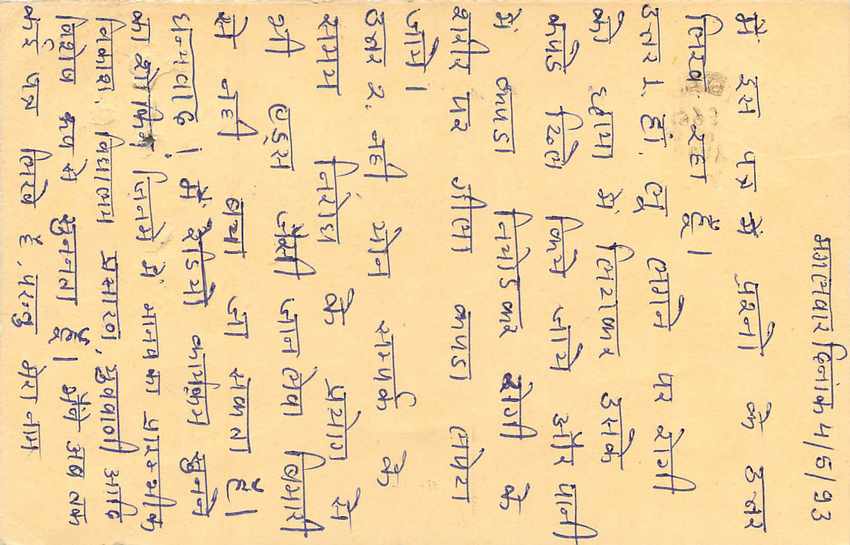 मंगलवार दिनांक 4/5/93
मैं इस पत्र में प्रश्नो के उत्तर
लिख रहा हूँ।
उत्तर 1. हां. लू लगने पर रोगी
को छाया में लिटाकर उसके
कपडे ढिले किये जाये और पानी
में कपडा निचोडकर रोगी के
शरीर पर गीला कपडा लपेटा
जाये।
उत्तर 2. नही योन सम्पर्क के
समय निरोध के प्रयोग से
भी एड्स जैसी जानलेवा बिमारी
से नही बचा जा सकता है।
धन्यवाद! मैं रेडियो कार्यक्रम सुनने
का शोकिन जिनमे में मानव का प्रारम्भीक
विकाश, विद्यालय प्रसारण, युववाणी आदि
विशेष रूप से सुनता हूँ। मैने अब तक
पत्र लिखे है, परन्तु मेरा नाम